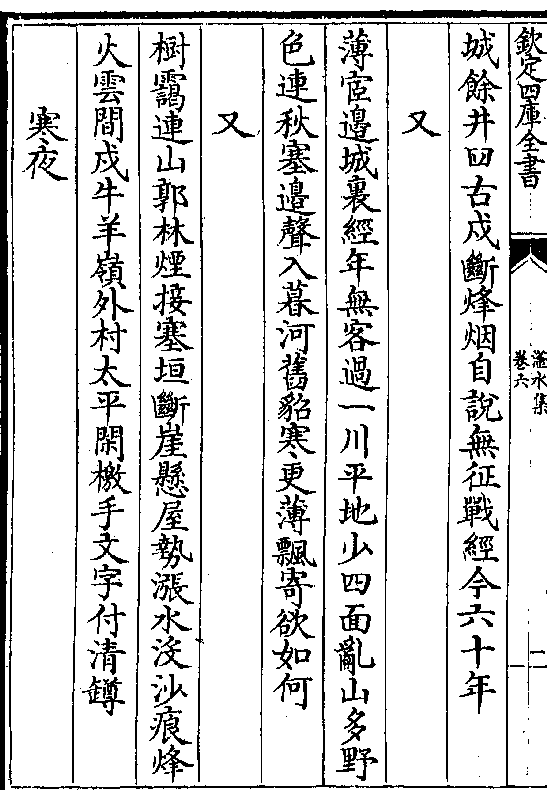 欽定四庫全書
滏水集
卷六
二
城餘井臼古戍斷烽烟自說無征戰經今六十年
又
薄宦邊城裏經年無客過一川平地少四面亂山多野
色連秋塞邊聲入暮河舊貂寒更薄飄寄欲如何
又
樹靄連山郭林煙接塞垣斷崖懸屋勢漲水沒沙痕烽
火雲間戍牛羊嶺外村太平閑檄手文字付清罇
寒夜